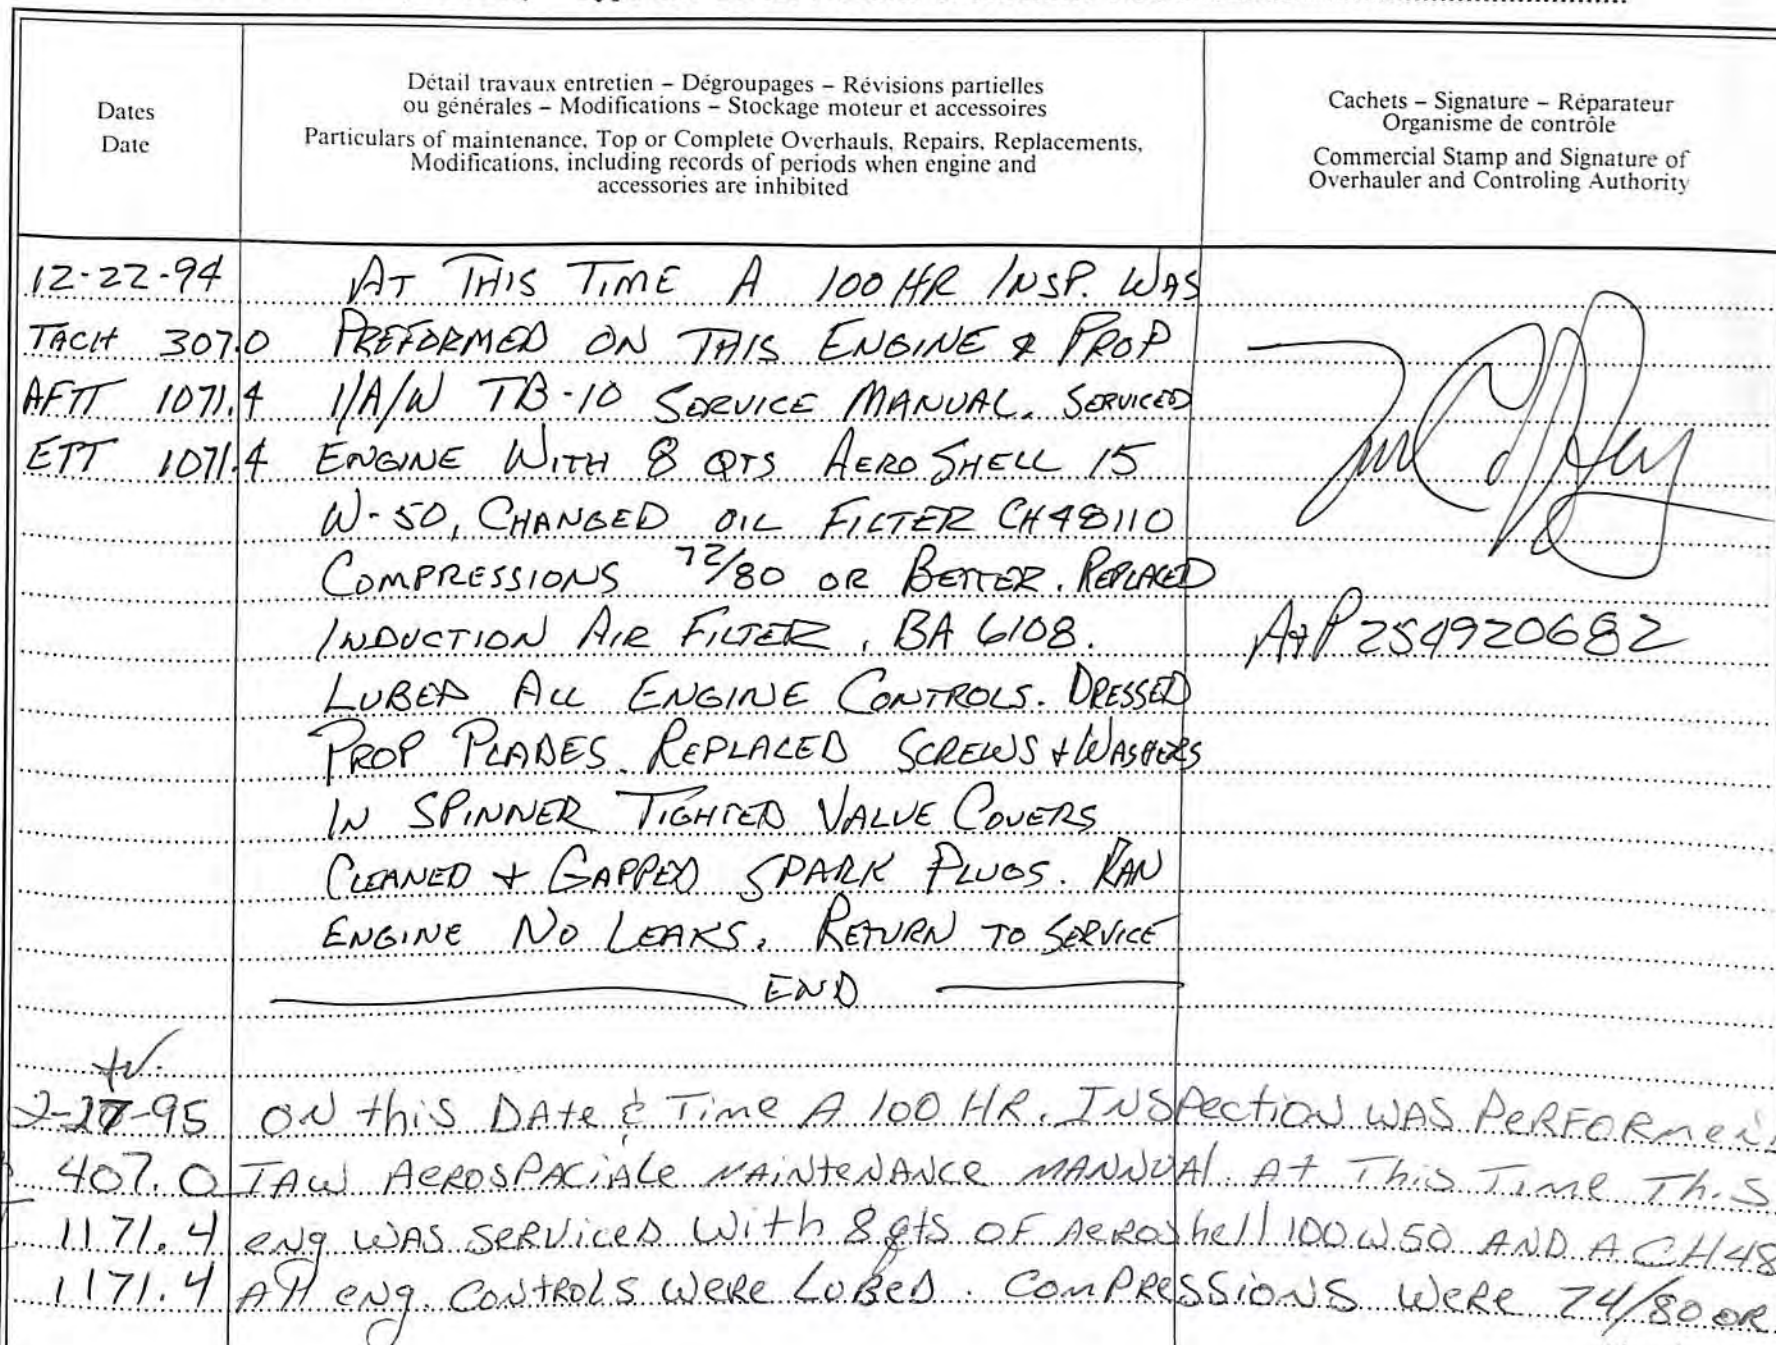 Dates
Date
Détail travaux entretien – Dégroupages – Révisions partielles
ou générales – Modifications – Stockage moteur et accessoires
Particulars of maintenance, Top or Complete Overhauls, Repairs, Replacements,
Modifications, including records of periods when engine and
accessories are inhibited
Cachets – Signature – Réparateur
Organisme de contrôle
Commercial Stamp and Signature of
Overhauler and Controling Authority
12-22-94 AT THIS TIME A 100 HR INSP. WAS
TACH 307.0 PREFORMED ON THIS ENGINE & PROP
AFTT 1071.4 I/A/W TB-10 SERVICE MANUAL. SERVICED
ETT 1071.4 ENGINE WITH 8 QTS AERO SHELL 15
W-50, CHANGED OIL FILTER CH48110
COMPRESSIONS 72/80 OR BETTER. REPLACED
INDUCTION AIR FILTER, BA 6108.
A+P 254920682
LUBED ALL ENGINE CONTROLS. DRESSED
PROP PLADES. REPLACED SCREWS + WASHERS
IN SPINNER TIGHTED VALUE COVERS
CLEANED + GAPPED SPARK PLUGS. RAN
ENGINE NO LEAKS. RETURN TO SERVICE
END
2-27-95 ON this DAte & Time A 100 HR. INSPection WAS PeRFORmeD
407.0 IAW AeROSPACiAle MAiNteNANCe MANNUAl. At This Time This
1171.4 eNg WAS SeRViceD With 8 qts OF AeRoshell 100 W 50 AND A CH48
1171.4 All eNg. CoNtRolS WeRe LUBeD. ComPReSSiONS WeRe 74/80 OR